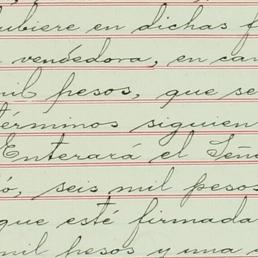 ubiere en dichas f
vendedora, en can
mil pesos, que se
términos siguien
Enterará el Seño
ó, seis mil pesos
que esté firmada
mil pesos y una